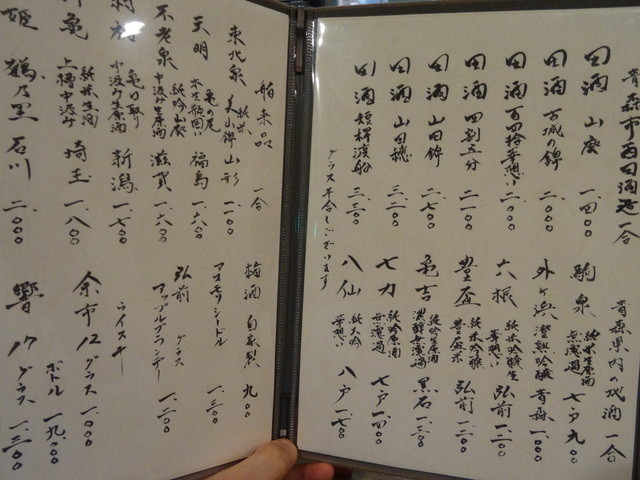 青森市西田酒造 一合
田酒 山廃 一.四〇〇
田酒 古城の錦 二.〇〇〇
田酒 百四拾 華想い 二.〇〇〇
田酒 四割五分 二.一〇〇
田酒 山田錦 二.七〇〇
田酒 山田穂 三.二〇〇
田酒 短稈渡船 三.三〇〇
グラス半合もございます
青森県内の地酒 一合
駒泉 純米生原酒 無濾過 七戸 九〇〇
外ヶ浜 澄熟吟醸 青森 一.〇〇〇
六根 純米吟醸生 華想い 弘前 一.二〇〇
豊盃 純米吟醸 豊盃米 弘前 一.二〇〇
亀吉 純吟生原酒 濃醇無濾過 黒石 一.三〇〇
七力 純吟原酒 無濾過 七戸 一.四〇〇
八仙 純大吟 華想い 八戸 一.七〇〇
舶来品 一合
東北泉 純米 美山錦 山形 一.一〇〇
天明 亀の尾 本生瓶囲い 福島 一.六〇〇
不老泉 純吟山廃 中汲み生原酒 滋賀 一.六〇〇
村祐 亀の取り 中汲み生原酒 新潟 一.七〇〇
亀 純米生酒 上槽中汲み 埼玉 一.八〇〇
姫 鶴乃里 石川 二.〇〇〇
梅酒 自家製 九〇〇
アオモリシードル 一.三〇〇
弘前 アップルブランデー グラス 一.二〇〇
ウイスキー
余市12 グラス 一.〇〇〇
ボトル 一九.〇〇〇
響17 グラス 一.三〇〇